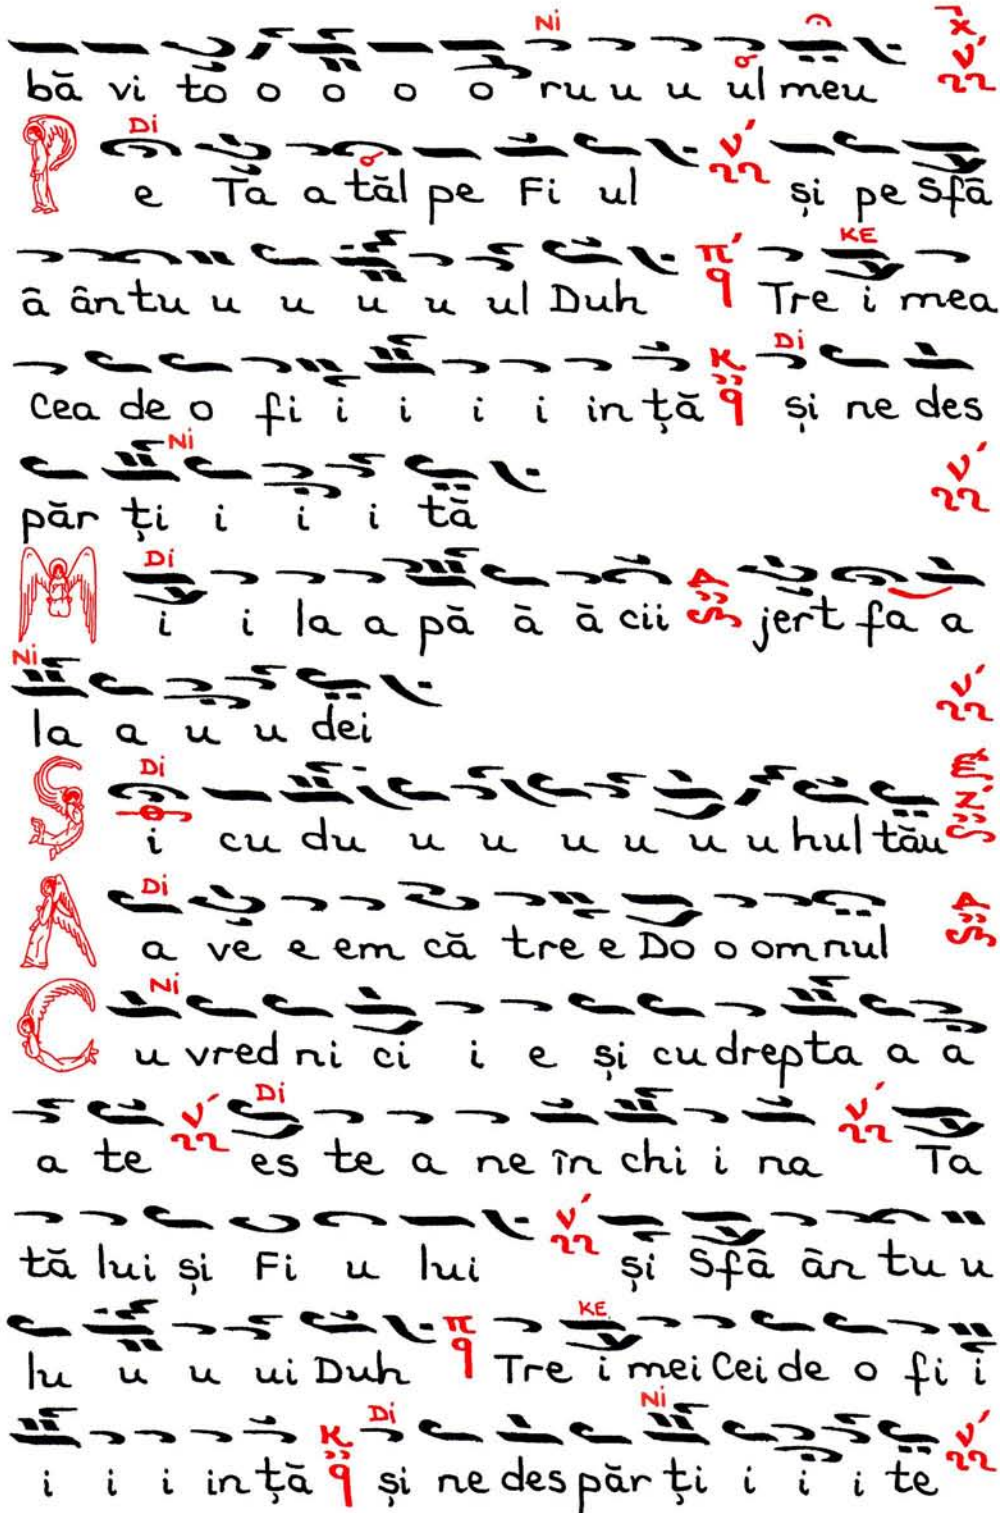 Ni
bă vi to o o o o ru u u ul meu
Di
P e Ta a tăl pe Fi ul și pe Sfâ
KE
â ân tu u u u u ul Duh Tre i mea
Di
Cea de o fi i i i i in ță și ne des
Ni
păr ți i i i tă
Di
M i i la a pă ă ă cii jert fa a
Ni
la a u u dei
Di
Ș i cu du u u u u u hul tău
Di
A a ve e em că tre e Do o om nul
Ni
C u vred ni ci i e și cu drep ta a a
Di
a te es te a ne în chi i na Ta
tă lui și Fi u lui și Sfâ ân tu u
KE
lu u u ui Duh Tre i mei Cei de o fi i
Di Ni
i i i in ță și ne des păr ți i i i te